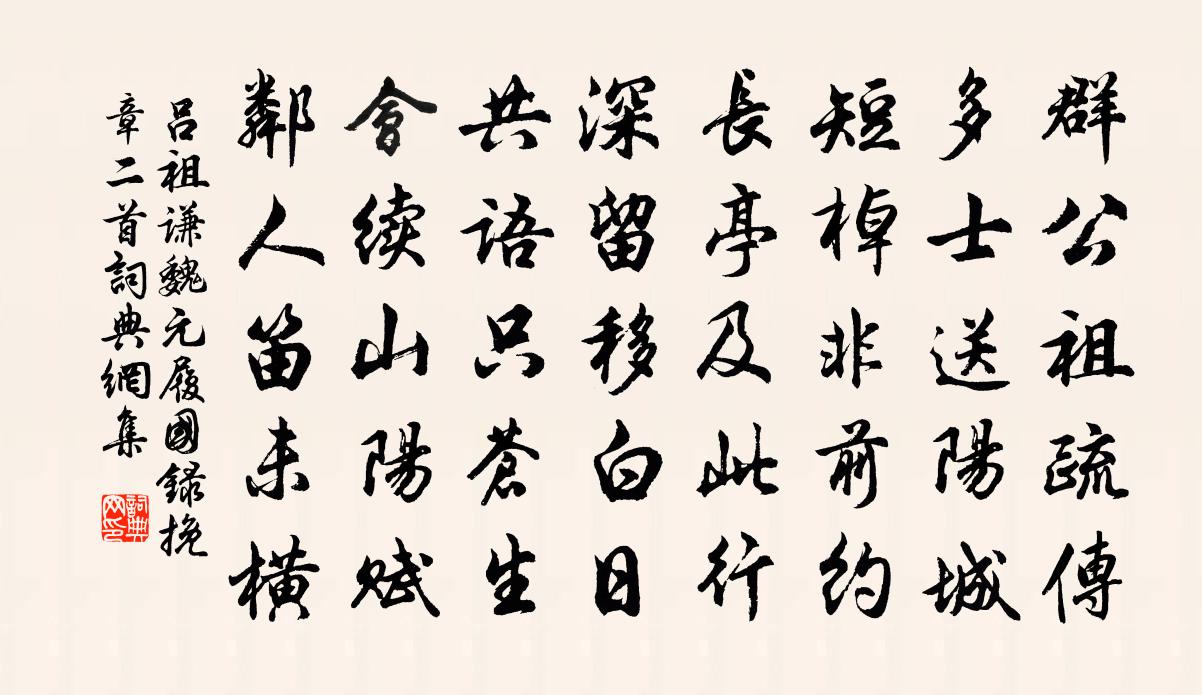 群公祖疏傅
多士送陽城
短棹非前約
長亭及此行
深留移白日
共語只蒼生
會續山陽賦
鄰人笛未橫
吕祖謙魏元履國録挽
章二首詞典網集
詞典網印